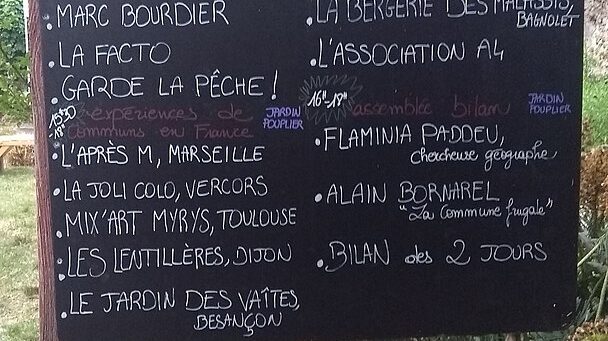 . MARC BOURDIER
. LA FACTO
. GARDE LA PÊCHE !
expériences de
communs en France
JARDIN
POUPLIER
. L'APRÈS M, MARSEILLE
. LA JOLI COLO, VERCORS
. MIX'ART MYRYS, TOULOUSE
. LES LENTILLÈRES, DIJON
. LE JARDIN DES VAÎTES,
BESANÇON
. LA BERGERIE DES MALASSIS,
BAGNOLET
. L'ASSOCIATION A4
16H-18H
assemblée bilan
JARDIN
POUPLIER
. FLAMINIA PADDEU,
chercheuse géographe
. ALAIN BORNAREL
"La Commune frugale"
. BILAN des 2 JOURS